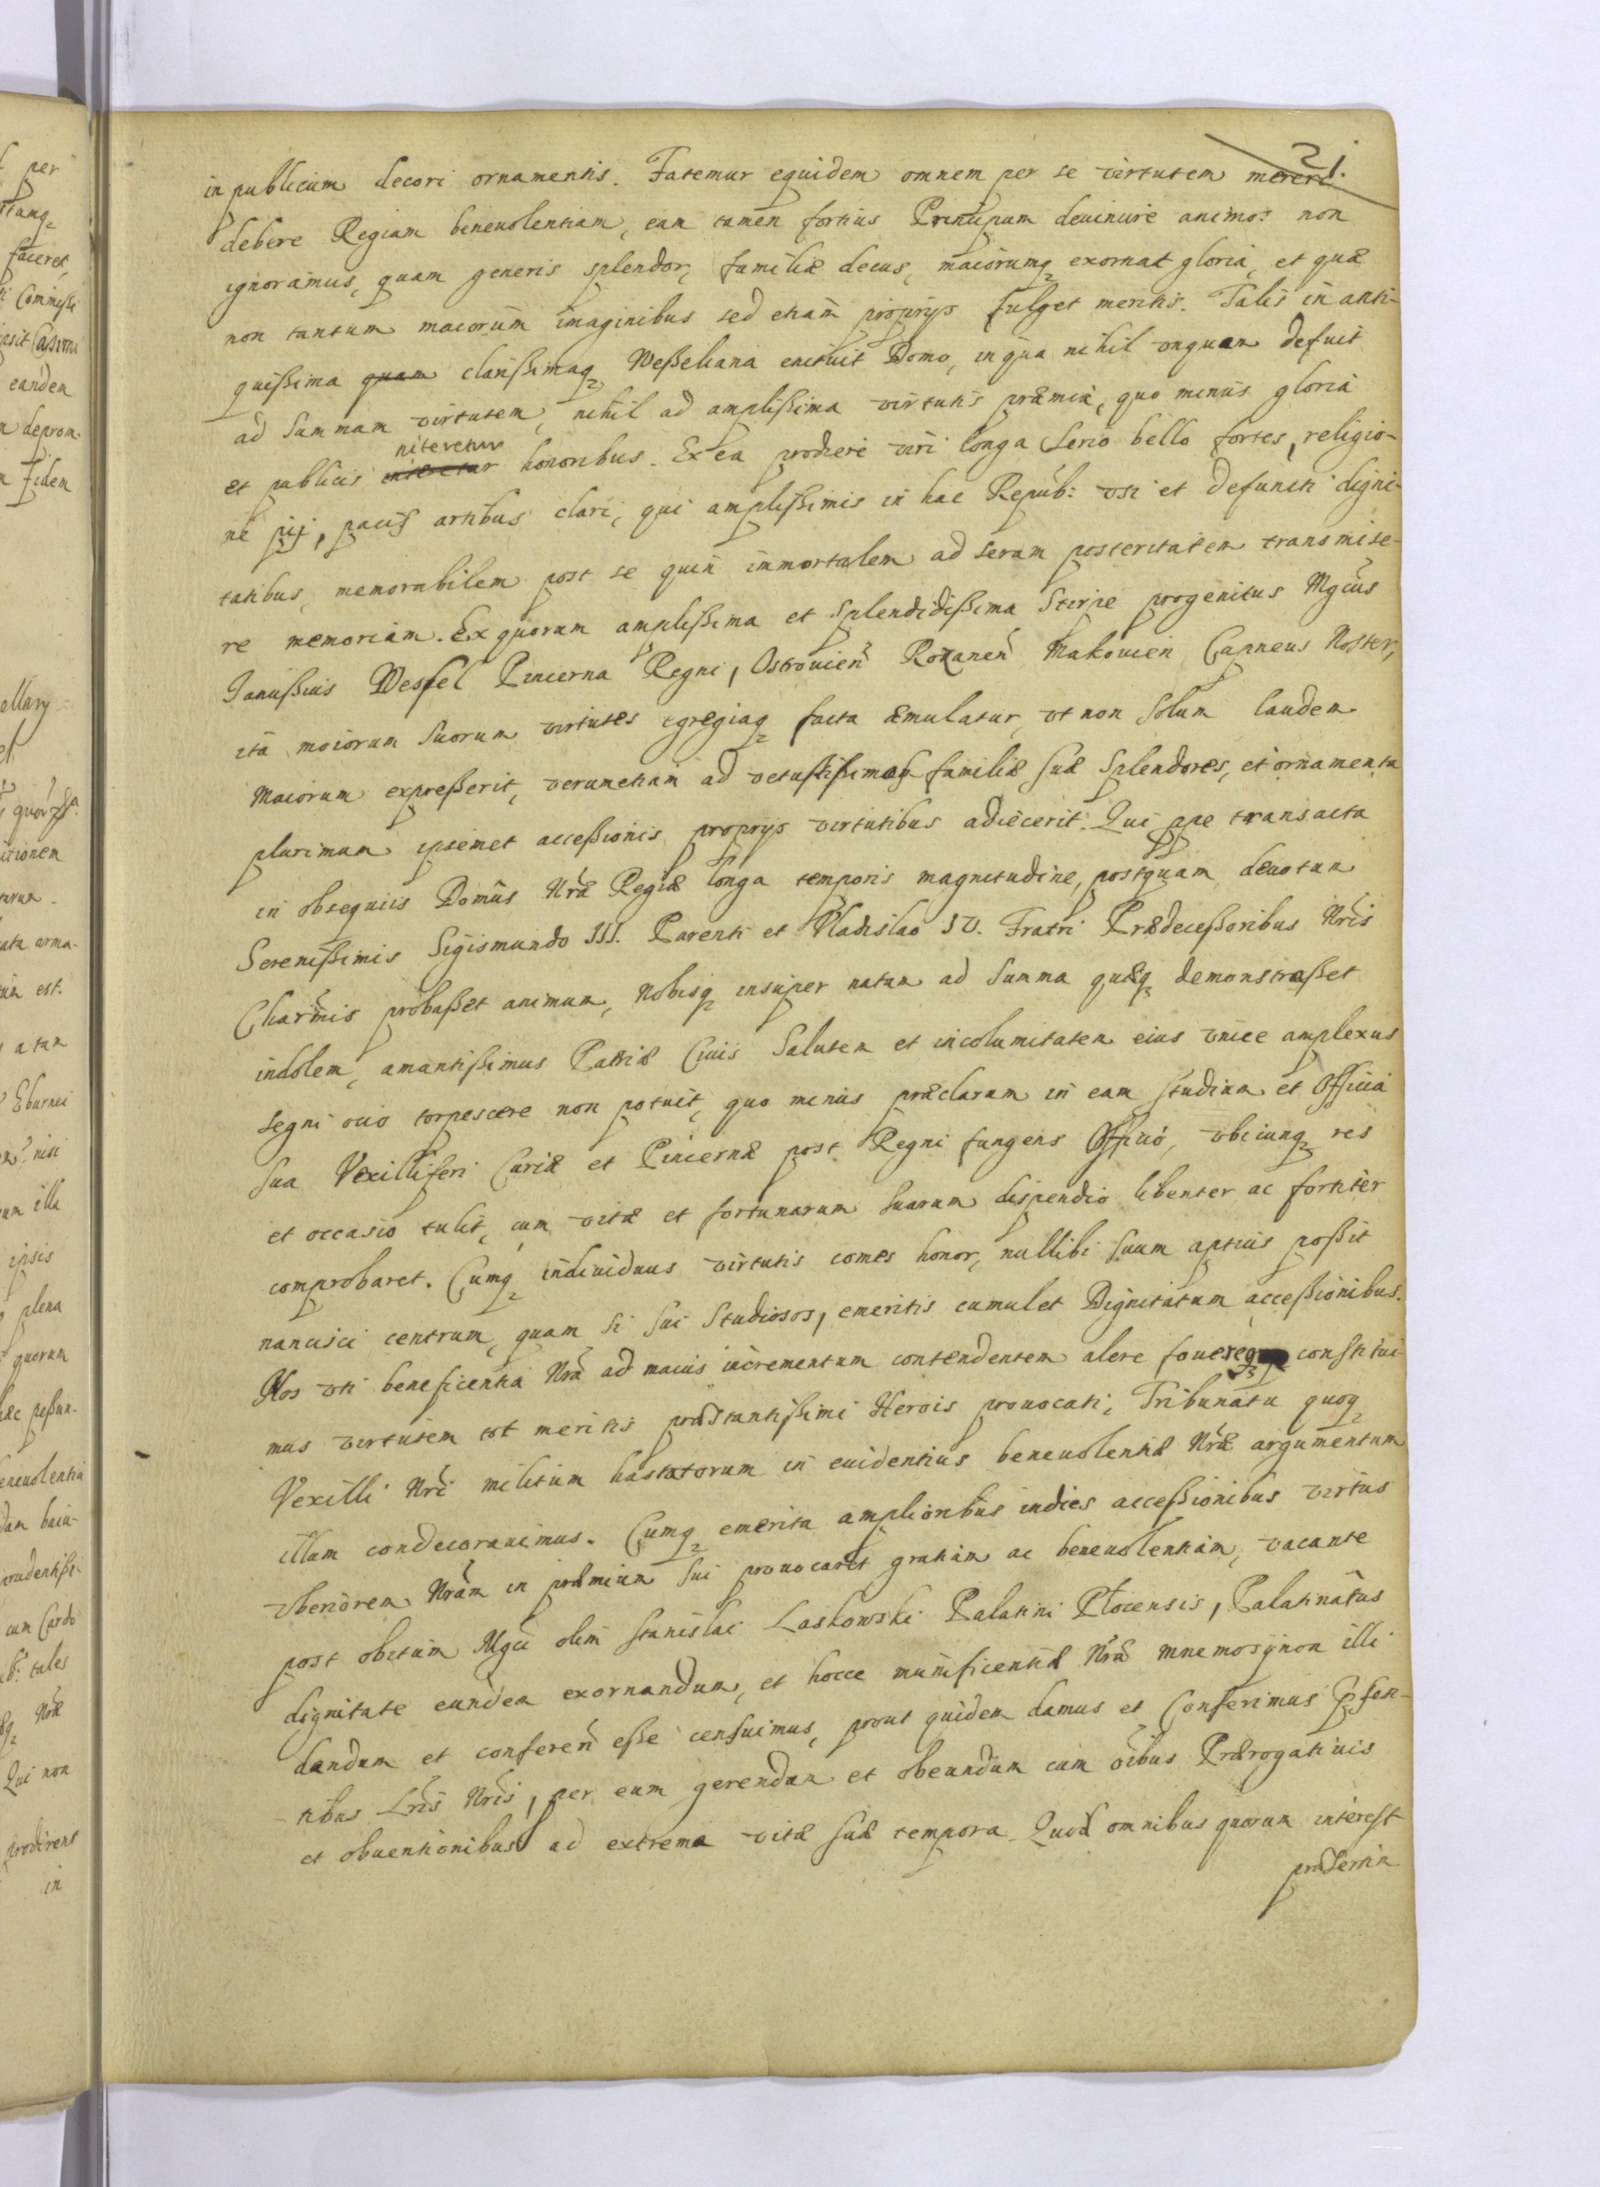 21.
in publicum decori ornamentis. Fatemur equidem omnem per se virtutem mereri
debere Regiam beneuolentiam, eam tamen fortius Principum deuincire animos non
ignoramus, quam generis splendor, familiæ decus, maiorumq exornat gloria, et quæ
non tantum maiorum imaginibus sed etiam proprijs fulget meritis. Talis in anti-
quißima quam clarißimaq Weßeliana enituit Domo, in qua nihil vnquam defuit
ad summam virtutem, nihil ad amplißima virtutis præmia, quo minus gloria
niteretur
et publicis honoribus. Ex ea prodiere viri longa serio bello fortes, religio-
ne pij, pacis artibus clari, qui amplißimis in hac Repub: vsi et defuncti digni-
tatibus, memorabilem post se quin immortalem ad seram posteritatem transmise-
re memoriam. Ex quorum amplißima et splendidißima Stirpe progenitus Mgcus
Janußius Wessel Pincerna Regni, Ostrouien Rozanen Makouien Capneus Noster,
ita maiorum suorum virtutes egregiaq facta æmulatur, vt non solum laudem
Maiorum expreßerit, verumetiam ad vetustißimam familiæ suæ splendores, et ornamenta
plurimum ipsemet acceßionis proprijs virtutibus adiecerit. Qui ppe transacta
in obsequiis Domus Nræ Regiæ longa temporis magnitudine, postquam deuotum
Serenißimis Sigismundo III. Parenti et Vladislao IV. Fratri Prædeceßoribus Nris
Charmis probaßet animum, Nobisq insuper natam ad summa quæq demonstraßet
indolem, amantißimus Patriæ Ciuis salutem et incolumitatem eius vnice amplexus
segni ocio torpescere non potuit, quo minus præclarum in eam studium et Officia
sua Vexilliferi Curiæ et Pincernæ post Regni fungens Officio, vbicunq res
et occasio tulit, cum vitæ et fortunarum suarum dispendio libenter ac fortiter
comprobaret. Cumq indiuiduus virtutis comes honor, nullibi suum aptius poßit
nancisci centrum, quam si sui studiosos, emeritis cumulet Dignitatum acceßionibus.
Nos vti beneficentia Nra ad maius incrementum contendentem alere fouereq constitui-
mus virtutem tot meritis præstantißimi Herois prouocati, Tribunatu quoq
Vexilli Nri militum hastatorum in euidentius beneuolentiæ Nræ argumentum
illum condecorauimus. Cumq emerita amplioribus indies acceßionibus virtus
vberiorem Nram in præmium sui prouocaret gratiam ac beneuolentiam, vacante
post obitum Mgci olim Stanislai Laskowski Palatini Plocensis, Palatinatus
dignitate eundem exornandum, et hocce munificentiæ Nræ mnemosynon illi
dandum et conferen eße censuimus, prout quidem damus et Conferimus Psen-
tibus Lris Nris, per eum gerendum et obeundum cum oibus Prærogatiuis
et obuentionibus ad extrema vitæ suæ tempora. Quod omnibus quorum interest
præsertim